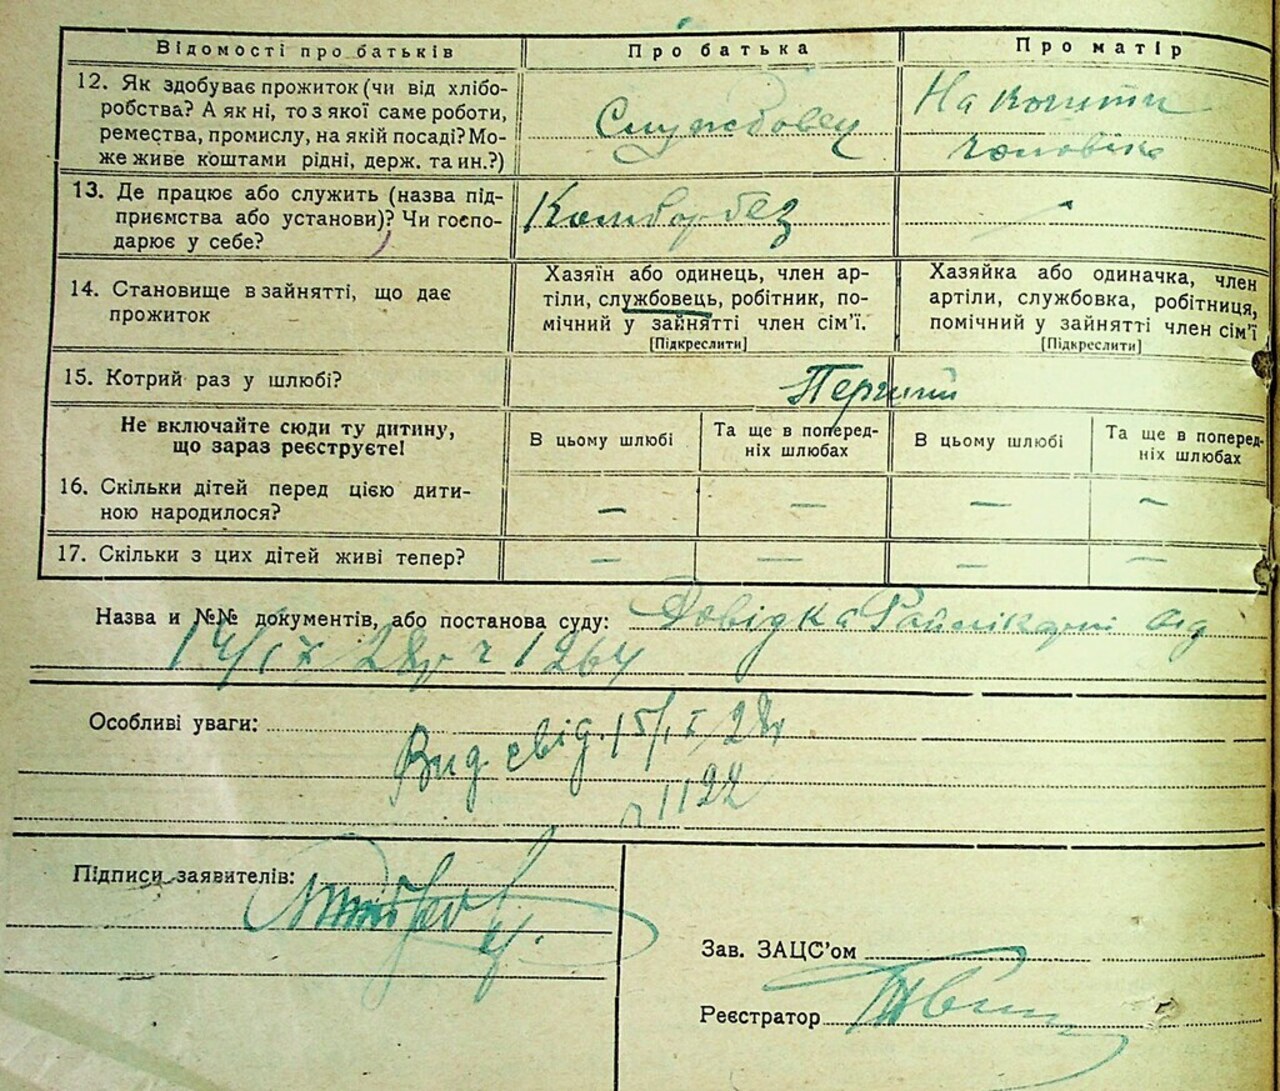 Відомості про батьків
Про батька
Про матір
12. Як здобуває прожиток (чи від хлібо-
робства? А як ні, то з якої саме роботи,
ремества, промислу, на якій посаді? Мо-
же живе коштами рідні, держ. та ин.?)
Службовец
На кошти
чоловіка
13. Де працює або служить (назва під-
приємства або установи)? Чи госпо-
дарює у себе?
Комборбез
—
14. Становище в зайнятті, що дає
прожиток
Хазяїн або одинець, член ар-
тіли, службовець, робітник, по-
мічний у зайнятті член сім'ї.
[Підкреслити]
Хазяйка або одиначка, член
артіли, службовка, робітниця,
помічний у зайнятті член сім'ї
[Підкреслити]
15. Котрий раз у шлюбі?
Перший
Не включайте сюди ту дитину,
що зараз реєструєте!
В цьому шлюбі
Та ще в поперед-
ніх шлюбах
В цьому шлюбі
Та ще в поперед-
ніх шлюбах
16. Скільки дітей перед цією дити-
ною народилося?
— — — —
17. Скільки з цих дітей живі тепер?
— — — —
Назва и №№ документів, або постанова суду: Довідка від
28р ч 1264
Особливі уваги:
Вид. свід. 28р
ч 1122
Підписи заявителів:
Зав. ЗАЦС'ом
Реєстратор